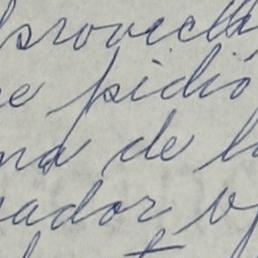 provech
e pidió
na de l
ador y